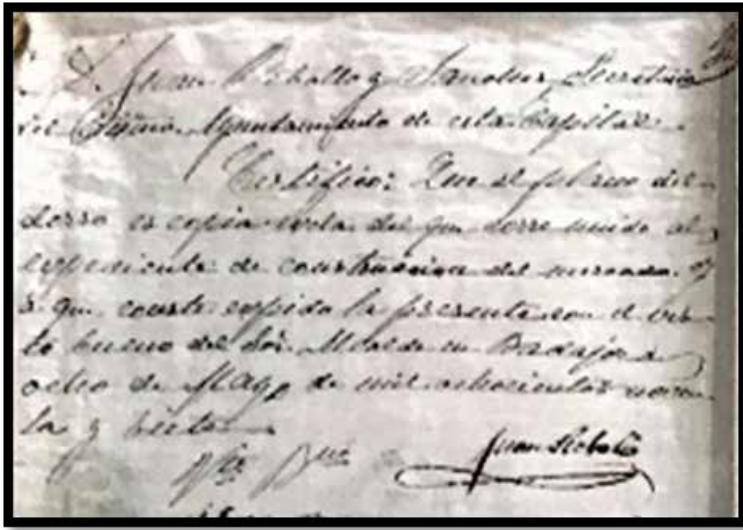 D. Juan Rebollo y Sanchez Secretario
del Excmo. Ayuntamiento de esta Capital.
Certifico: Que el plano del
dorso es copia exacta del que corre unido al
expediente de construccion del mercado. Y
a que conste expido la presente con el vis-
to bueno del Sor. Alcalde en Badajoz a
ocho de Mayo de mil ochocientos noven-
ta y siete
Vto Bno
Juan Rebollo